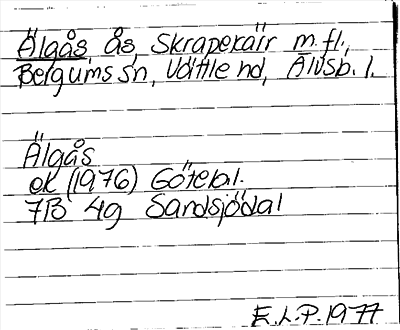 Älgås, ås, Skrapekärr m.fl.,
Bergums sn, Vättle hd, Älvsb. l.
Älgås
ek (1976) Götebl.
7B 4g Sandsjödal
E.L.P. 1977